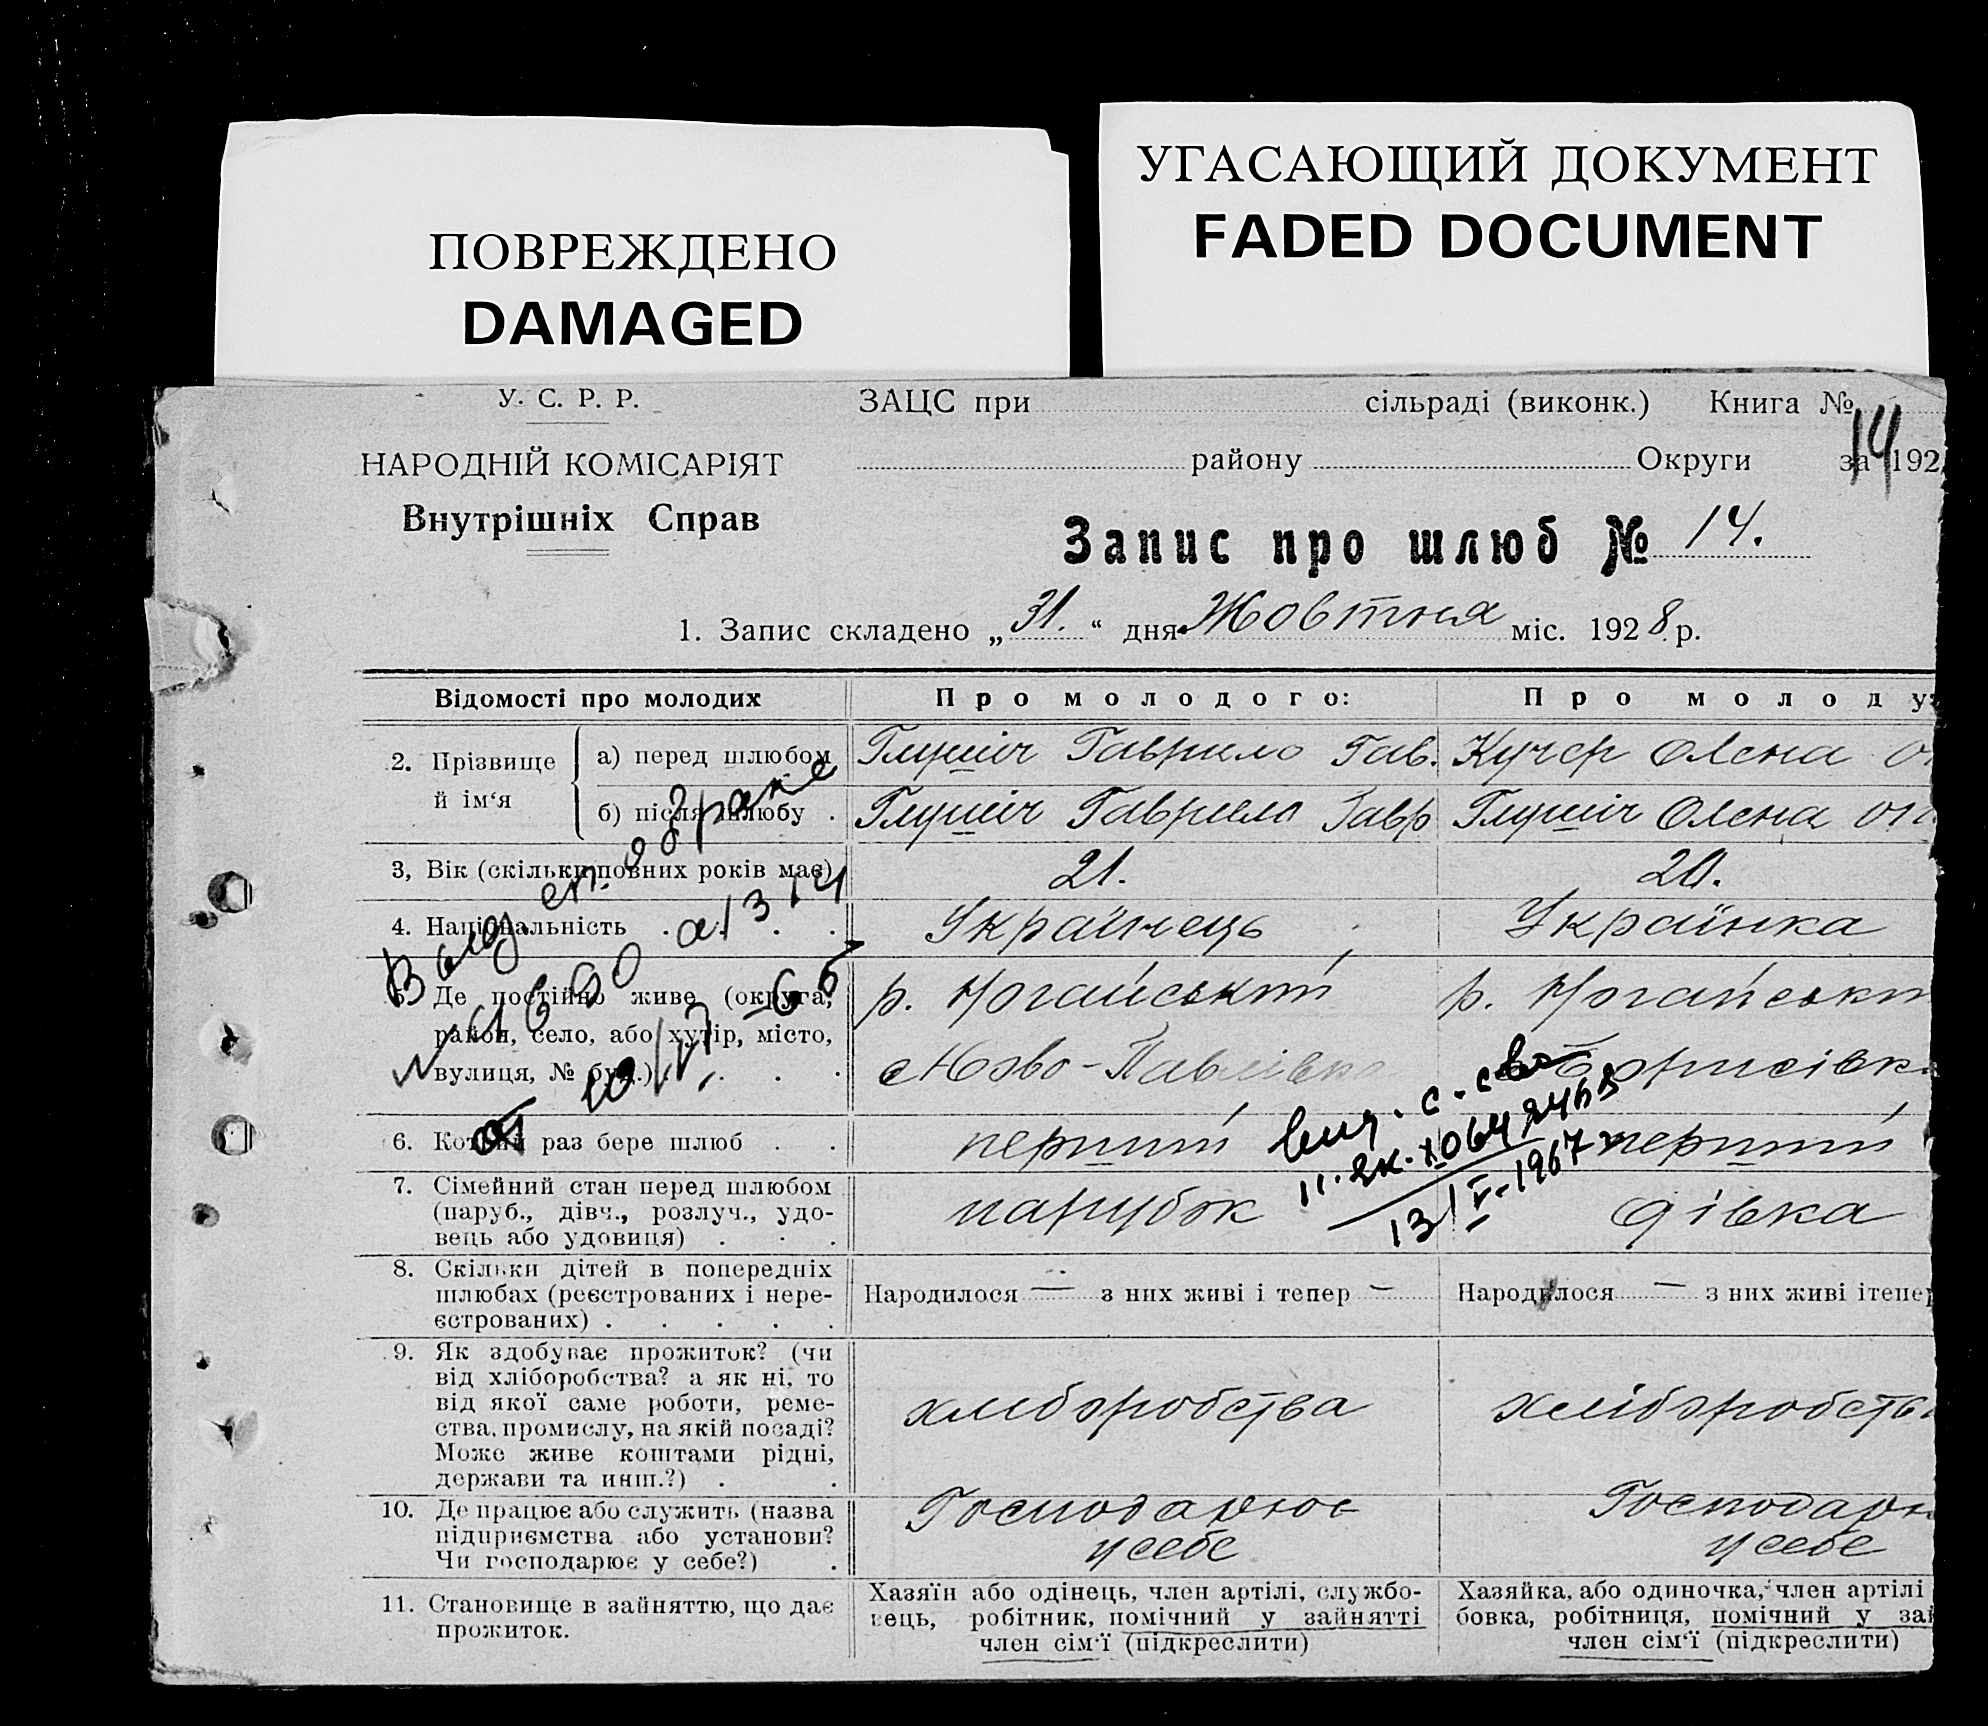 ПОВРЕЖДЕНО
DAMAGED
УГАСАЮЩИЙ ДОКУМЕНТ
FADED DOCUMENT
У. С. Р. Р.
НАРОДНІЙ КОМІСАРІЯТ
Внутрішніх Справ
ЗАЦС при сільраді (виконк.) Книга №
району Округи за 192
14
Запис про шлюб № 14.
1. Запис складено „31.“ дня Жовтня міс. 1928 р.
Відомості про молодих
Про молодого:
Про молоду
2. Прізвище й ім‘я
а) перед шлюбом
Глушіч Гаврило Гав.
Кучер Олена
б) після шлюбу .
Глушіч Гаврило Гавр
Глушіч Олена
3, Вік (скільки повних років має)
21.
20.
4. Національність . . . .
Українець
Українка
5. Де постійно живе (округа, район, село, або хутір, місто, вулиця, № буд.) . . . .
р. Ногайський
Ново-Павлівка
р. Ногайськи
Борисівк
6. Котрий раз бере шлюб . .
перший
перший
7. Сімейний стан перед шлюбом
(паруб., дівч., розлуч., удо-
вець або удовиця) . . .
парубок
дівка
8. Скільки дітей в попередніх
шлюбах (реєстрованих і нере-
єстрованих) . . . . .
Народилося — з них живі і тепер —
Народилося — з них живі ітепер
9. Як здобуває прожиток? (чи
від хліборобства? а як ні, то
від якої саме роботи, реме-
ства, промислу, на якій посаді?
Може живе коштами рідні,
держави та инш.?) . .
хліборобства
хліборобства
10. Де працює або служить (назва
підприємства або установи?
Чи господарює у себе?) .
Господарює
у себе
Господарю
у себе
11. Становище в зайняттю, що дає
прожиток.
Хазяїн або одінець, член артілі, службо-
вець, робітник, помічний у зайнятті
член сім‘ї (підкреслити)
Хазяйка, або одиночка, член артілі
бовка, робітниця, помічний у зай
член сім‘ї (підкреслити)
13/V-1967